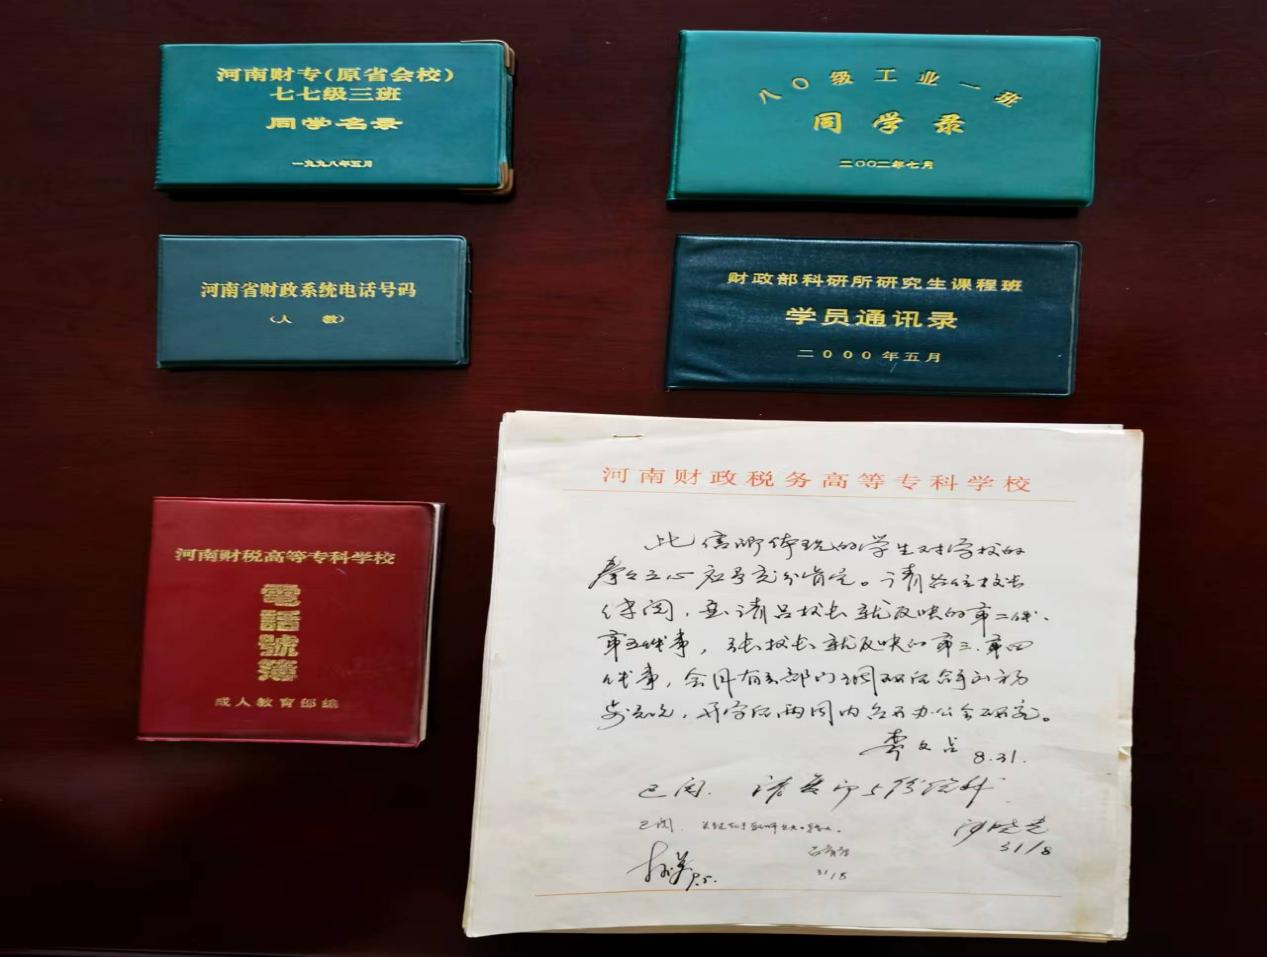 河南财专(原省会校)
七七级三班
同学名录
一九九八年五月
八〇级工业一班
同学录
二〇〇二年七月
河南省财政系统电话号码
(人教)
财政部科研所研究生课程班
学员通讯录
二000年五月
河南财税高等专科学校
電話號簿
成人教育部编
河南财政税务高等专科学校
此信所体现的学生对学校的
立心应予充分肯定。请各位校长
传阅,并请吕校长就反映的第二件、
第五件事,张校长就反映的第三、第四
件事,会同有关部门调
,开学后两周内召开办公会研究。
8.31.
已阅.
已阅.
31/8
31/8